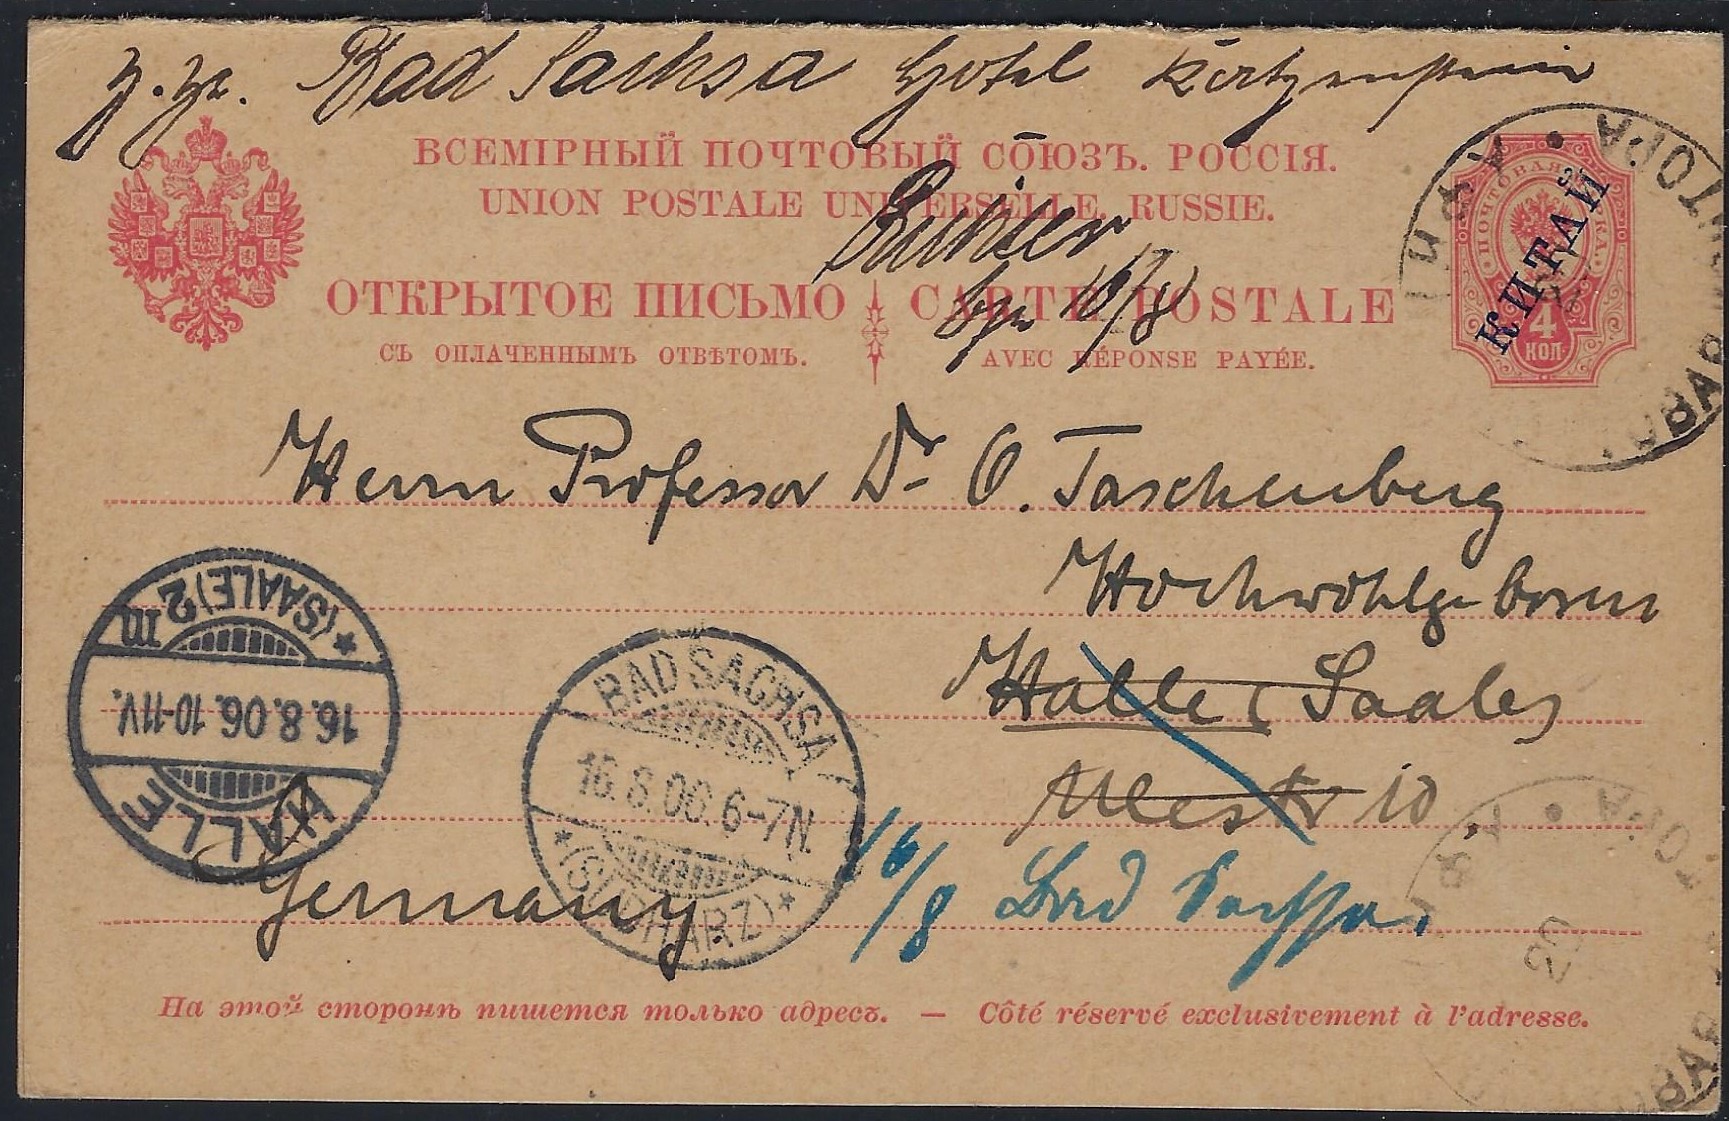 z. Zt. Bad Sachsa Hotel Katzenstein
ВСЕМІРНЫЙ ПОЧТОВЫЙ СОЮЗЪ. РОССІЯ.
UNION POSTALE UNIVERSELLE. RUSSIE.
ОТКРЫТОЕ ПИСЬМО
CARTE POSTALE
СЪ ОПЛАЧЕННЫМЪ ОТВѢТОМЪ.
AVEC RÉPONSE PAYÉE.
16/8
ПОЧТОВАЯ МАРКА.
4
КОП.
КИТАЙ
УРГА
КОНТОРА
Herrn Professor Dr. O. Taschenberg
Hochwohlgeboren
Halle (Saale)
10.
Germany
16/8 Bad Sachsa.
HALLE
16.8.06.10-11V.
*(SAALE)2 m
BAD SACHSA
16.8.06.6-7N.
*(SÜDHARZ)*
На этой сторонѣ пишется только адресъ. — Côté réservé exclusivement à l'adresse.